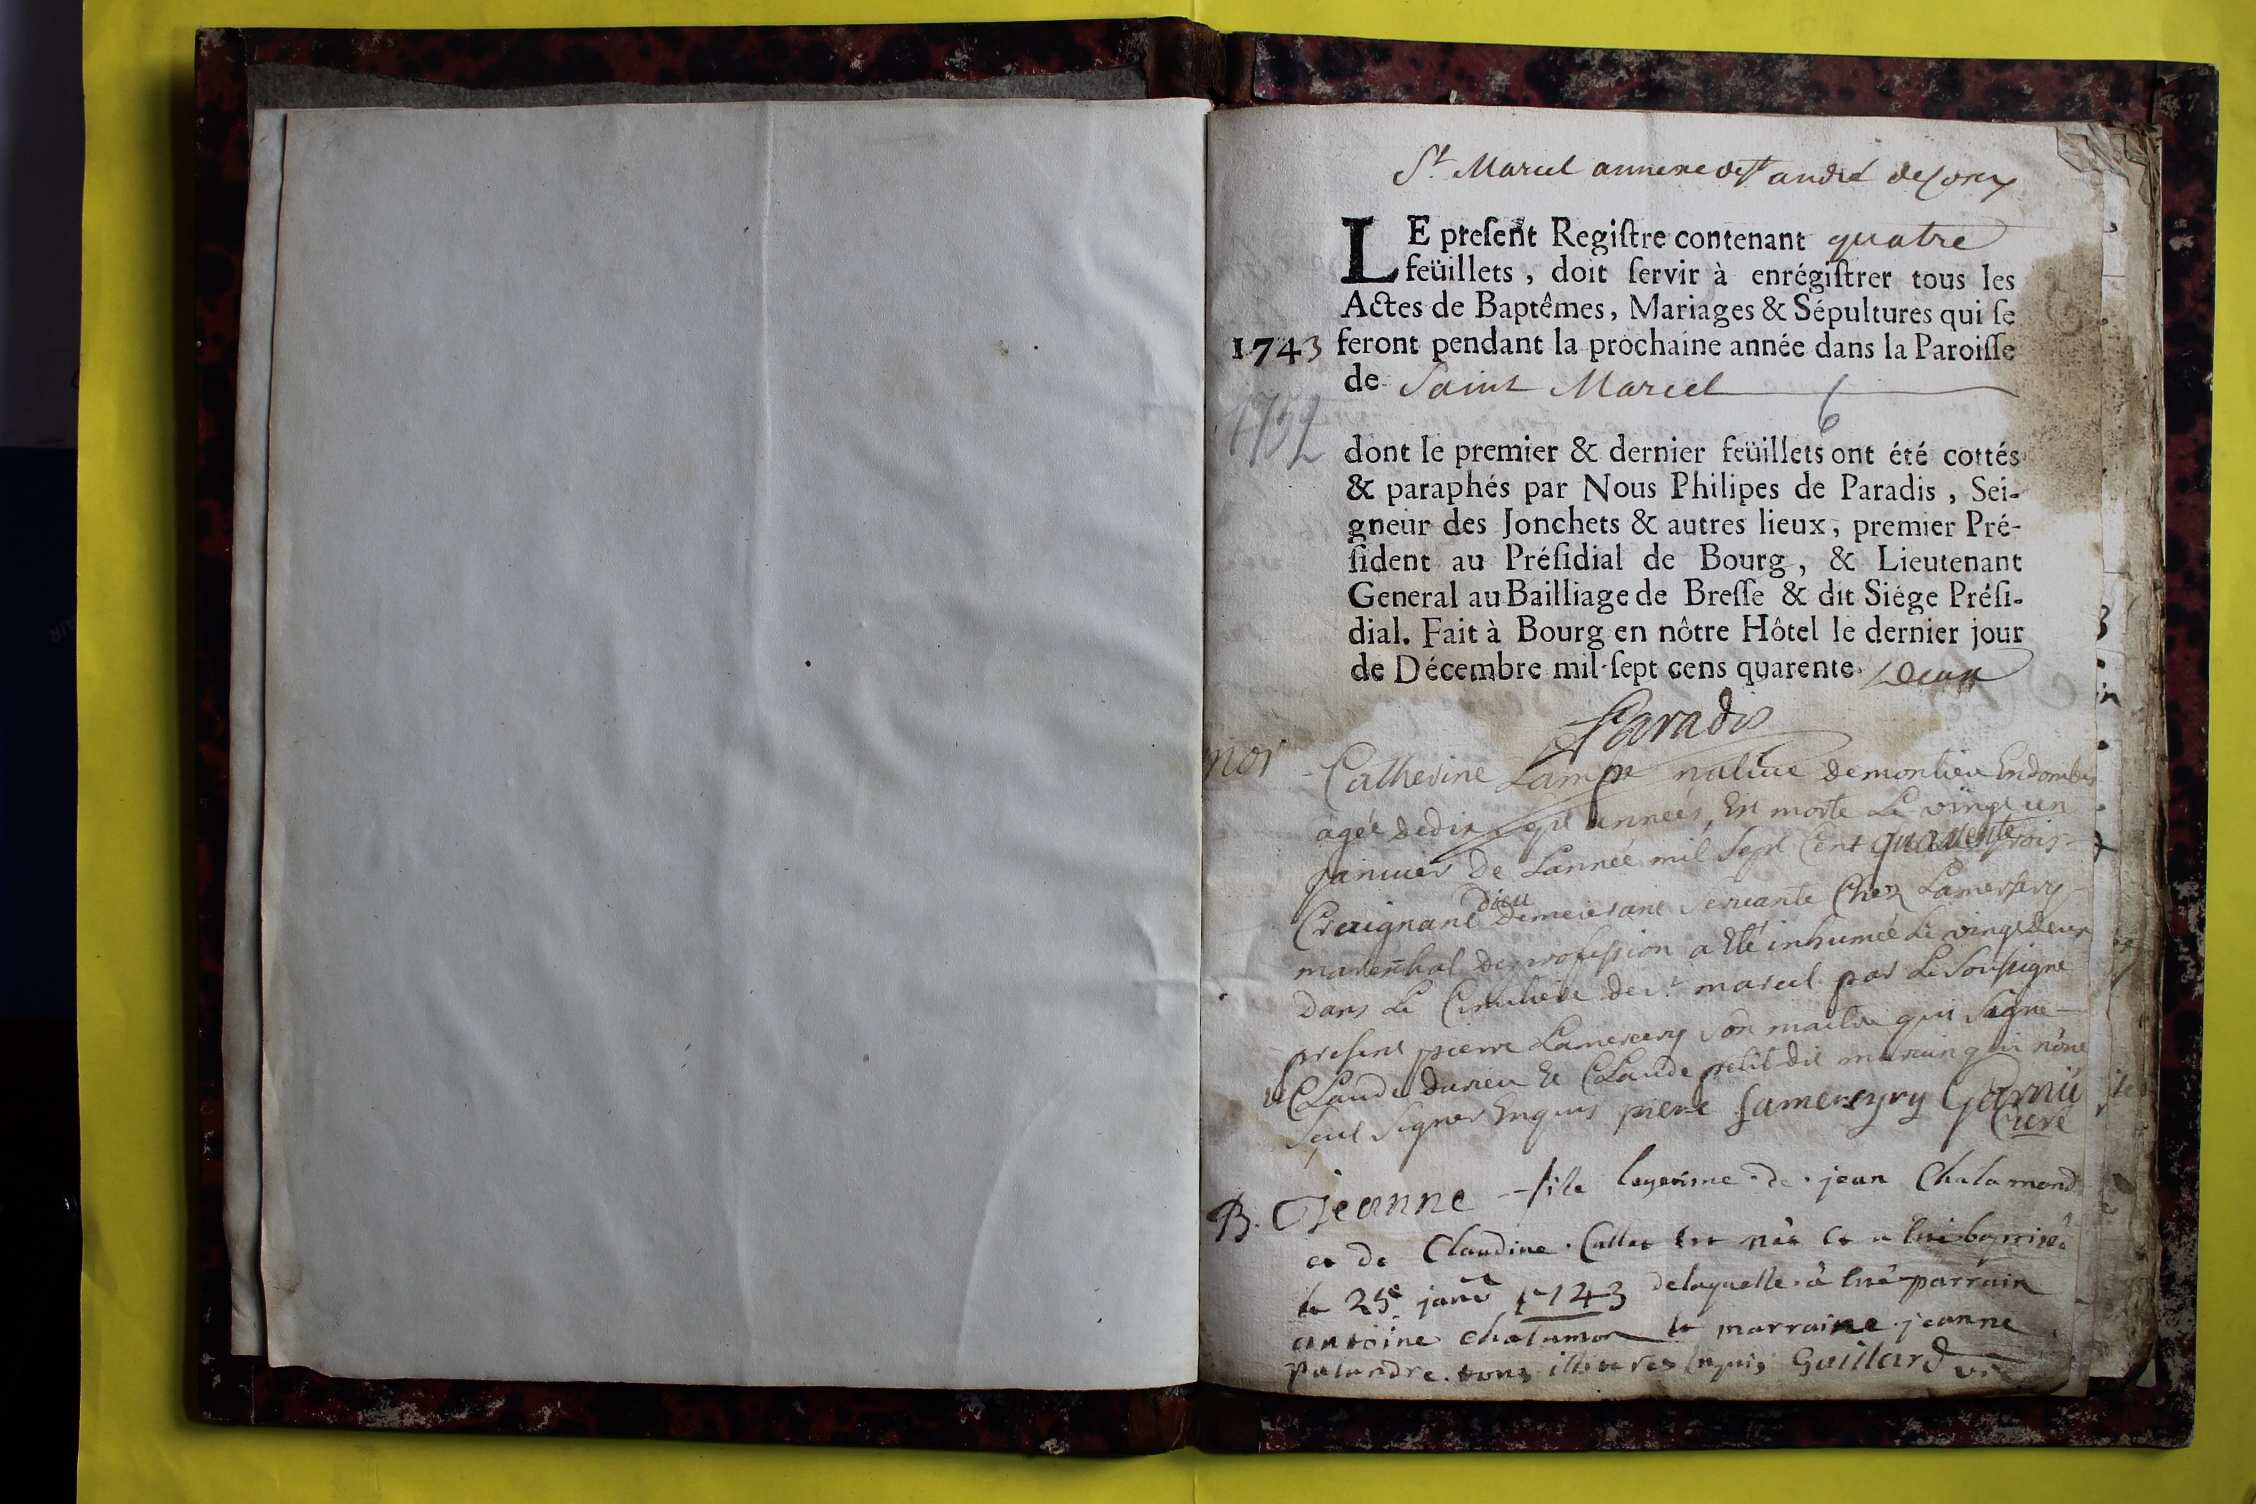 St. Marcel annexe de st andré de Corcy
LE presẽnt Registre contenant quatre
feüillets, doit servir à enrégistrer tous les
Actes de Baptêmes, Mariages & Sépultures qui se
1743 feront pendant la prochaine année dans la Paroisse
de Saint Marcel
1752
dont le premier & dernier feüillets ont été cottés
& paraphés par Nous Philipes de Paradis, Sei-
gneur des Jonchets & autres lieux, premier Pré-
sident au Présidial de Bourg, & Lieutenant
General au Bailliage de Bresse & dit Siége Prési-
dial. Fait à Bourg en nôtre Hôtel le dernier jour
de Décembre mil sept cens quarente deux
Paradis
mor Catherine Lamp native de montieu En dombes
agée de dix sept années, Est morte Le vingt un
Janvier De Lannée mil sept Cent quarente trois
Craignant dieu Demeurant servante Chez Lamersery
mareschal De profession a Eté inhumée Le vingt deux
Dans Le Cimetiere de st. marcel par Le soussigné
present pierre Lamercery son maitre qui signe
et Claude Durieu Et Claude petit dit qui n'ont
sçeu signer Enquis piere Lamereyry Garnié
Curé
B. Jeanne fille legetime de jean Chalamond
et de Claudine Callet Est née et a Eté baptisée
le 25e janv 1743 de laquelle a Eté parrain
antoine chalamon et marraine jeanne
palandre tous illiteres Enquis Gaillard vic